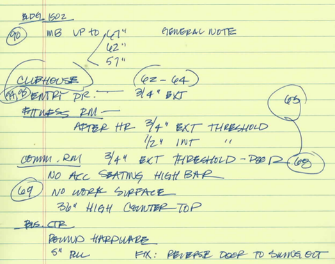 BLDG. 1502
90 MB UP TO 67" GENERAL NOTE
62"
57"
CLUBHOUSE 62-64
ENTRY DR. 3/4" EXT
FITNESS RM
AFTER HR 3/4" EXT THRESHOLD 63
1/2" INT "
COMM. RM 3/4" EXT THRESHOLD - DOOR 68
NO ACC SEATING HIGH BAR
69 NO WORK SURFACE
36" HIGH COUNTER TOP
BUS. CTR
ROUND HARDWARE
5" FIX: REVERSE DOOR TO SWING OUT